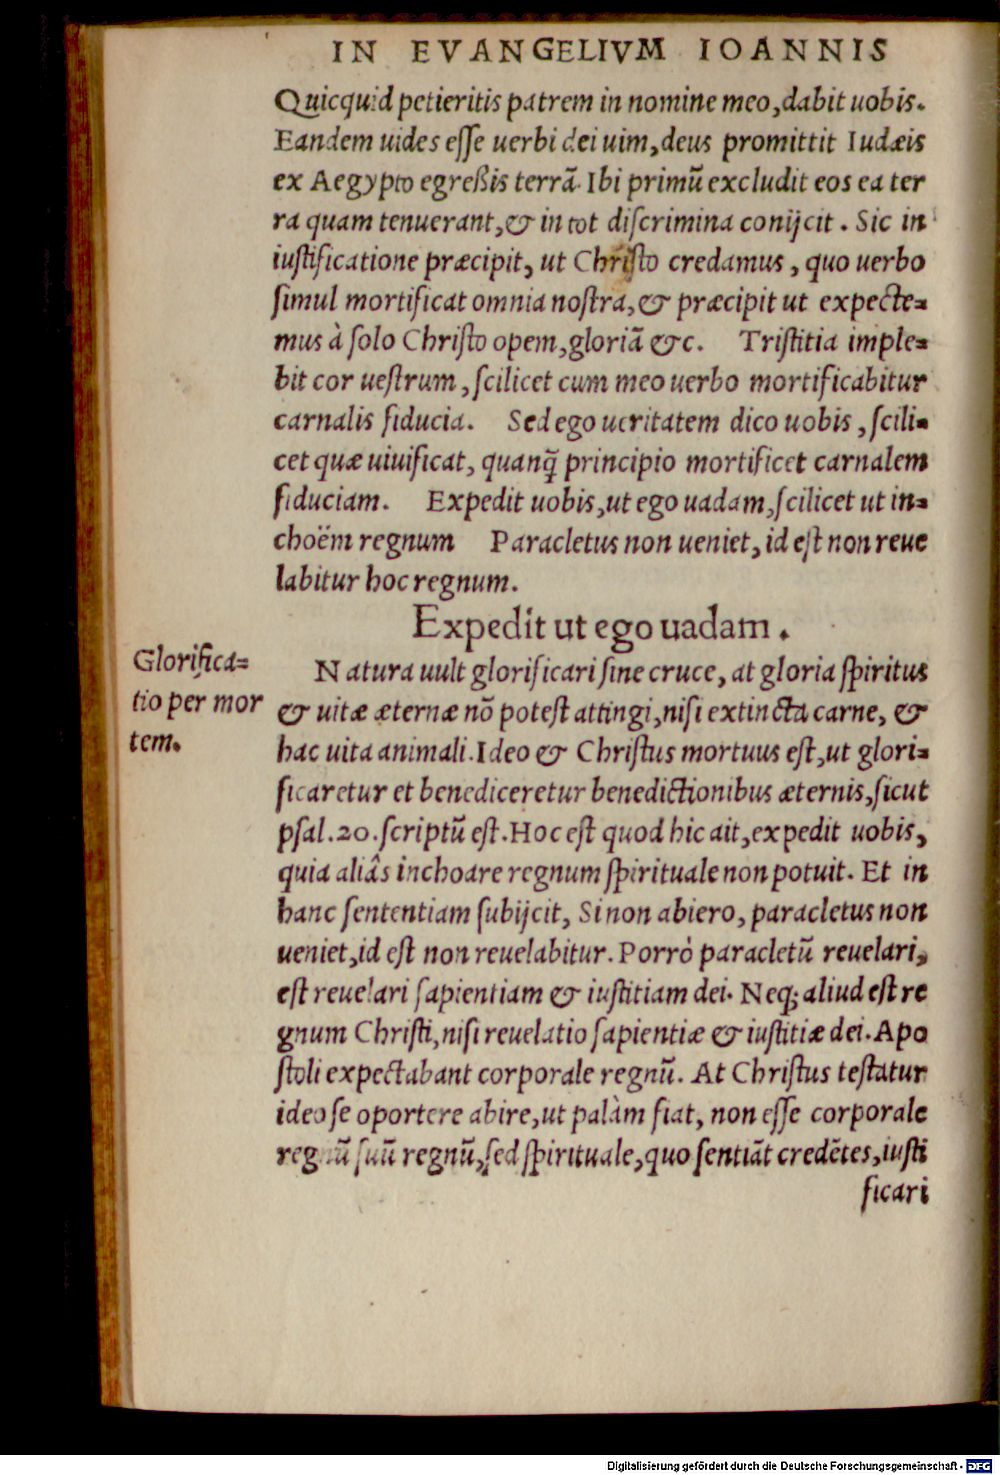 IN EVANGELIVM IOANNIS
Quicquid petieritis patrem in nomine meo, dabit uobis.
Eandem uides esse uerbi dei uim, deus promittit Iudæis
ex Aegypto egreßis terrã. Ibi primũ excludit eos ea ter
ra quam tenuerant, & in tot discrimina conijcit. Sic in
iustificatione præcipit, ut Christo credamus, quo uerbo
simul mortificat omnia nostra, & præcipit ut expecte=
mus à solo Christo opem, gloriã &c. Tristitia imple=
bit cor uestrum, scilicet cum meo uerbo mortificabitur
carnalis fiducia. Sed ego ueritatem dico uobis, scili=
cet quæ uiuificat, quanq̃ principio mortificet carnalem
fiduciam. Expedit uobis, ut ego uadam, scilicet ut in=
choëm regnum Paracletus non ueniet, id est non reue
labitur hoc regnum.
Expedit ut ego uadam.
Glorifica=
tio per mor
tem.
Natura uult glorificari sine cruce, at gloria spiritus
& uitæ æternæ nõ potest attingi, nisi extincta carne, &
hac uita animali. Ideo & Christus mortuus est, ut glori=
ficaretur et benediceretur benedictionibus æternis, sicut
psal. 20. scriptũ est. Hoc est quod hic ait, expedit uobis,
quia aliâs inchoare regnum spirituale non potuit. Et in
hanc sententiam subijcit, Si non abiero, paracletus non
ueniet, id est non reuelabitur. Porrò paracletũ reuelari,
est reuelari sapientiam & iustitiam dei. Neq; aliud est re
gnum Christi, nisi reuelatio sapientiæ & iustitiæ dei. Apo
stoli expectabant corporale regnũ. At Christus testatur
ideo se oportere abire, ut palàm fiat, non esse corporale
regnũ suũ regnũ, sed spirituale, quo sentiãt credẽtes, iusti
ficari
Digitalisierung gefördert durch die Deutsche Forschungsgemeinschaft - DFG